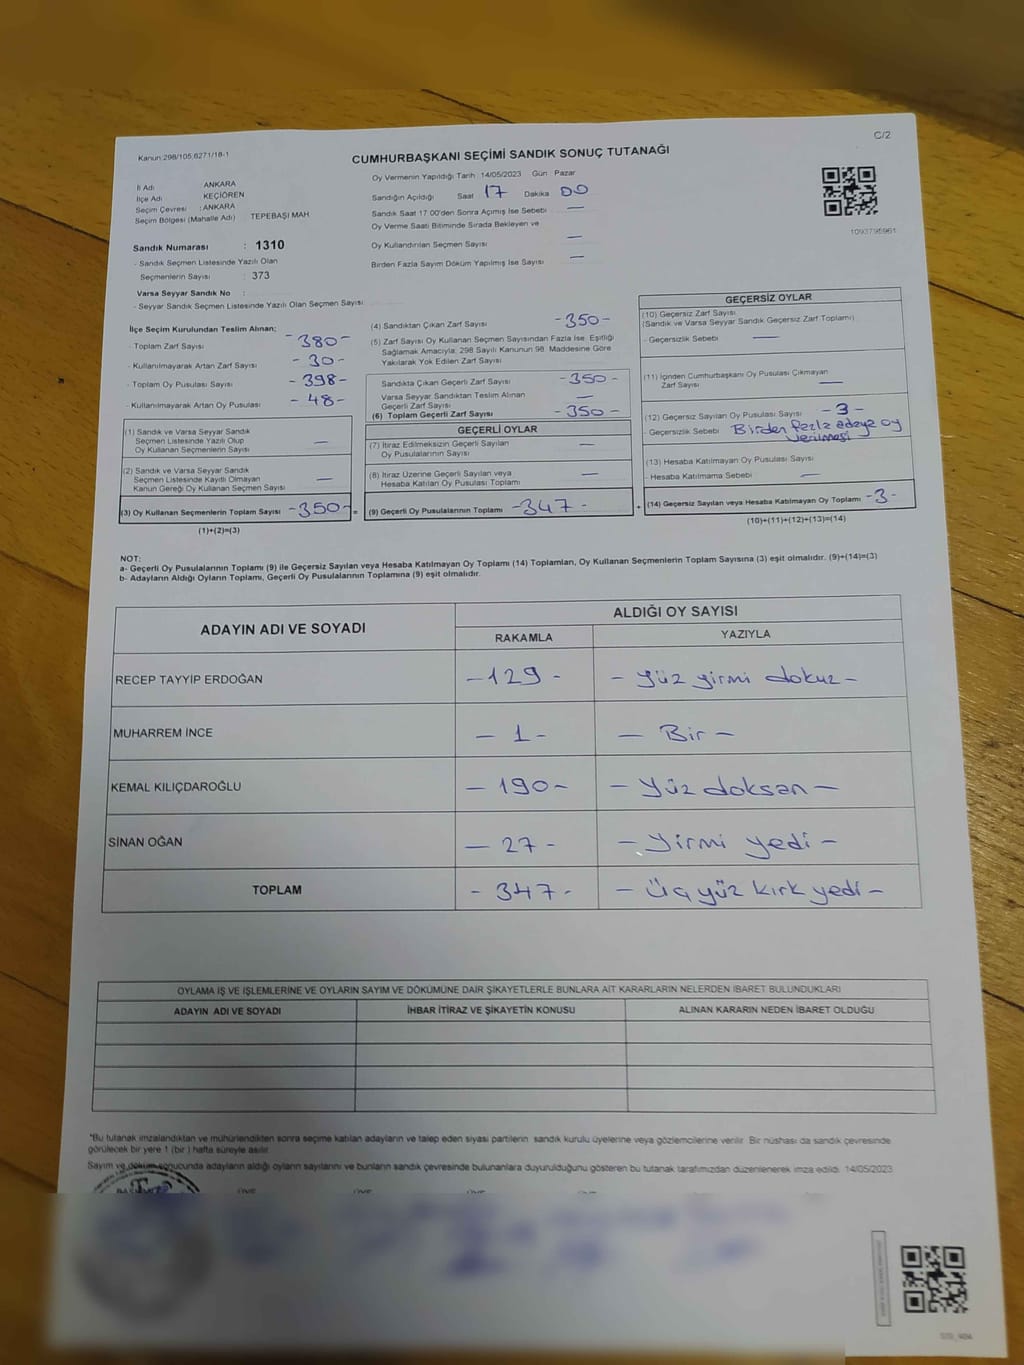 C/2
Kanun:298/105;6271/18-1
CUMHURBAŞKANI SEÇİMİ SANDIK SONUÇ TUTANAĞI
İl Adı ANKARA
İlçe Adı KEÇİÖREN
Seçim Çevresi : ANKARA
Seçim Bölgesi (Mahalle Adı) TEPEBAŞI MAH
Sandık Numarası : 1310
- Sandık Seçmen Listesinde Yazılı Olan
Seçmenlerin Sayısı : 373
Varsa Seyyar Sandık No :
- Seyyar Sandık Seçmen Listesinde Yazılı Olan Seçmen Sayısı
Oy Vermenin Yapıldığı Tarih 14/05/2023 Gün Pazar
Sandığın Açıldığı Saat 17 Dakika 00
Sandık Saat 17.00'den Sonra Açımış İse Sebebi —
Oy Verme Saati Bitiminde Sırada Bekleyen ve
Oy Kullandırılan Seçmen Sayısı —
Birden Fazla Sayım Döküm Yapılmış İse Sayısı —
1093795961
İlçe Seçim Kurulundan Teslim Alınan;
- Toplam Zarf Sayısı -380-
- Kullanılmayarak Artan Zarf Sayısı -30-
- Toplam Oy Pusulası Sayısı -398-
- Kullanılmayarak Artan Oy Pusulası -48-
(1) Sandık ve Varsa Seyyar Sandık
Seçmen Listesinde Yazılı Olup
Oy Kullanan Seçmenlerin Sayısı —
(2) Sandık ve Varsa Seyyar Sandık
Seçmen Listesinde Kayıtlı Olmayan
Kanun Gereği Oy Kullanan Seçmen Sayısı —
(3) Oy Kullanan Seçmenlerin Toplam Sayısı -350- =
(1)+(2)=(3)
(4) Sandıktan Çıkan Zarf Sayısı -350-
(5) Zarf Sayısı Oy Kullanan Seçmen Sayısından Fazla İse, Eşitliği
Sağlamak Amacıyla; 298 Sayılı Kanunun 98. Maddesine Göre
Yakılarak Yok Edilen Zarf Sayısı
Sandıkta Çıkan Geçerli Zarf Sayısı -350-
Varsa Seyyar Sandıktan Teslim Alınan
Geçerli Zarf Sayısı —
(6) Toplam Geçerli Zarf Sayısı -350-
GEÇERLİ OYLAR
(7) İtiraz Edilmeksizin Geçerli Sayılan
Oy Pusulalarının Sayısı —
(8) İtiraz Üzerine Geçerli Sayılan veya
Hesaba Katılan Oy Pusulası Toplamı —
(9) Geçerli Oy Pusulalarının Toplamı -347- +
GEÇERSİZ OYLAR
(10) Geçersiz Zarf Sayısı
(Sandık ve Varsa Seyyar Sandık Geçersiz Zarf Toplamı)
- Geçersizlik Sebebi —
(11) İçinden Cumhurbaşkanı Oy Pusulası Çıkmayan
Zarf Sayısı —
(12) Geçersiz Sayılan Oy Pusulası Sayısı -3-
- Geçersizlik Sebebi Birden fazla adaya oy
verilmesi
(13) Hesaba Katılmayan Oy Pusulası Sayısı
- Hesaba Katılmama Sebebi —
(14) Geçersiz Sayılan veya Hesaba Katılmayan Oy Toplamı -3-
(10)+(11)+(12)+(13)=(14)
NOT:
a- Geçerli Oy Pusulalarının Toplamı (9) ile Geçersiz Sayılan veya Hesaba Katılmayan Oy Toplamı (14) Toplamları, Oy Kullanan Seçmenlerin Toplam Sayısına (3) eşit olmalıdır. (9)+(14)=(3)
b- Adayların Aldığı Oyların Toplamı, Geçerli Oy Pusulalarının Toplamına (9) eşit olmalıdır.
ADAYIN ADI VE SOYADI ALDIĞI OY SAYISI
RAKAMLA YAZIYLA
RECEP TAYYİP ERDOĞAN -129- - Yüz yirmi dokuz -
MUHARREM İNCE - 1 - - Bir -
KEMAL KILIÇDAROĞLU - 190 - - Yüz doksan -
SİNAN OĞAN - 27 - - Yirmi yedi -
TOPLAM - 347 - - Üç yüz kırk yedi -
OYLAMA İŞ VE İŞLEMLERİNE VE OYLARIN SAYIM VE DÖKÜMÜNE DAİR ŞİKAYETLERLE BUNLARA AİT KARARLARIN NELERDEN İBARET BULUNDUKLARI
ADAYIN ADI VE SOYADI İHBAR İTİRAZ VE ŞİKAYETİN KONUSU ALINAN KARARIN NEDEN İBARET OLDUĞU
*Bu tutanak imzalandıktan ve mühürlendikten sonra seçime katılan adayların ve talep eden siyasi partilerin sandık kurulu üyelerine veya gözlemcilerine verilir. Bir nüshası da sandık çevresinde
görülecek bir yere 1 (bir ) hafta süreyle asılır.
Sayım ve döküm sonucunda adayların aldığı oyların sayılarını ve bunların sandık çevresinde bulunanlara duyurulduğunu gösteren bu tutanak tarafımızdan düzenlenerek imza edildi. 14/05/2023